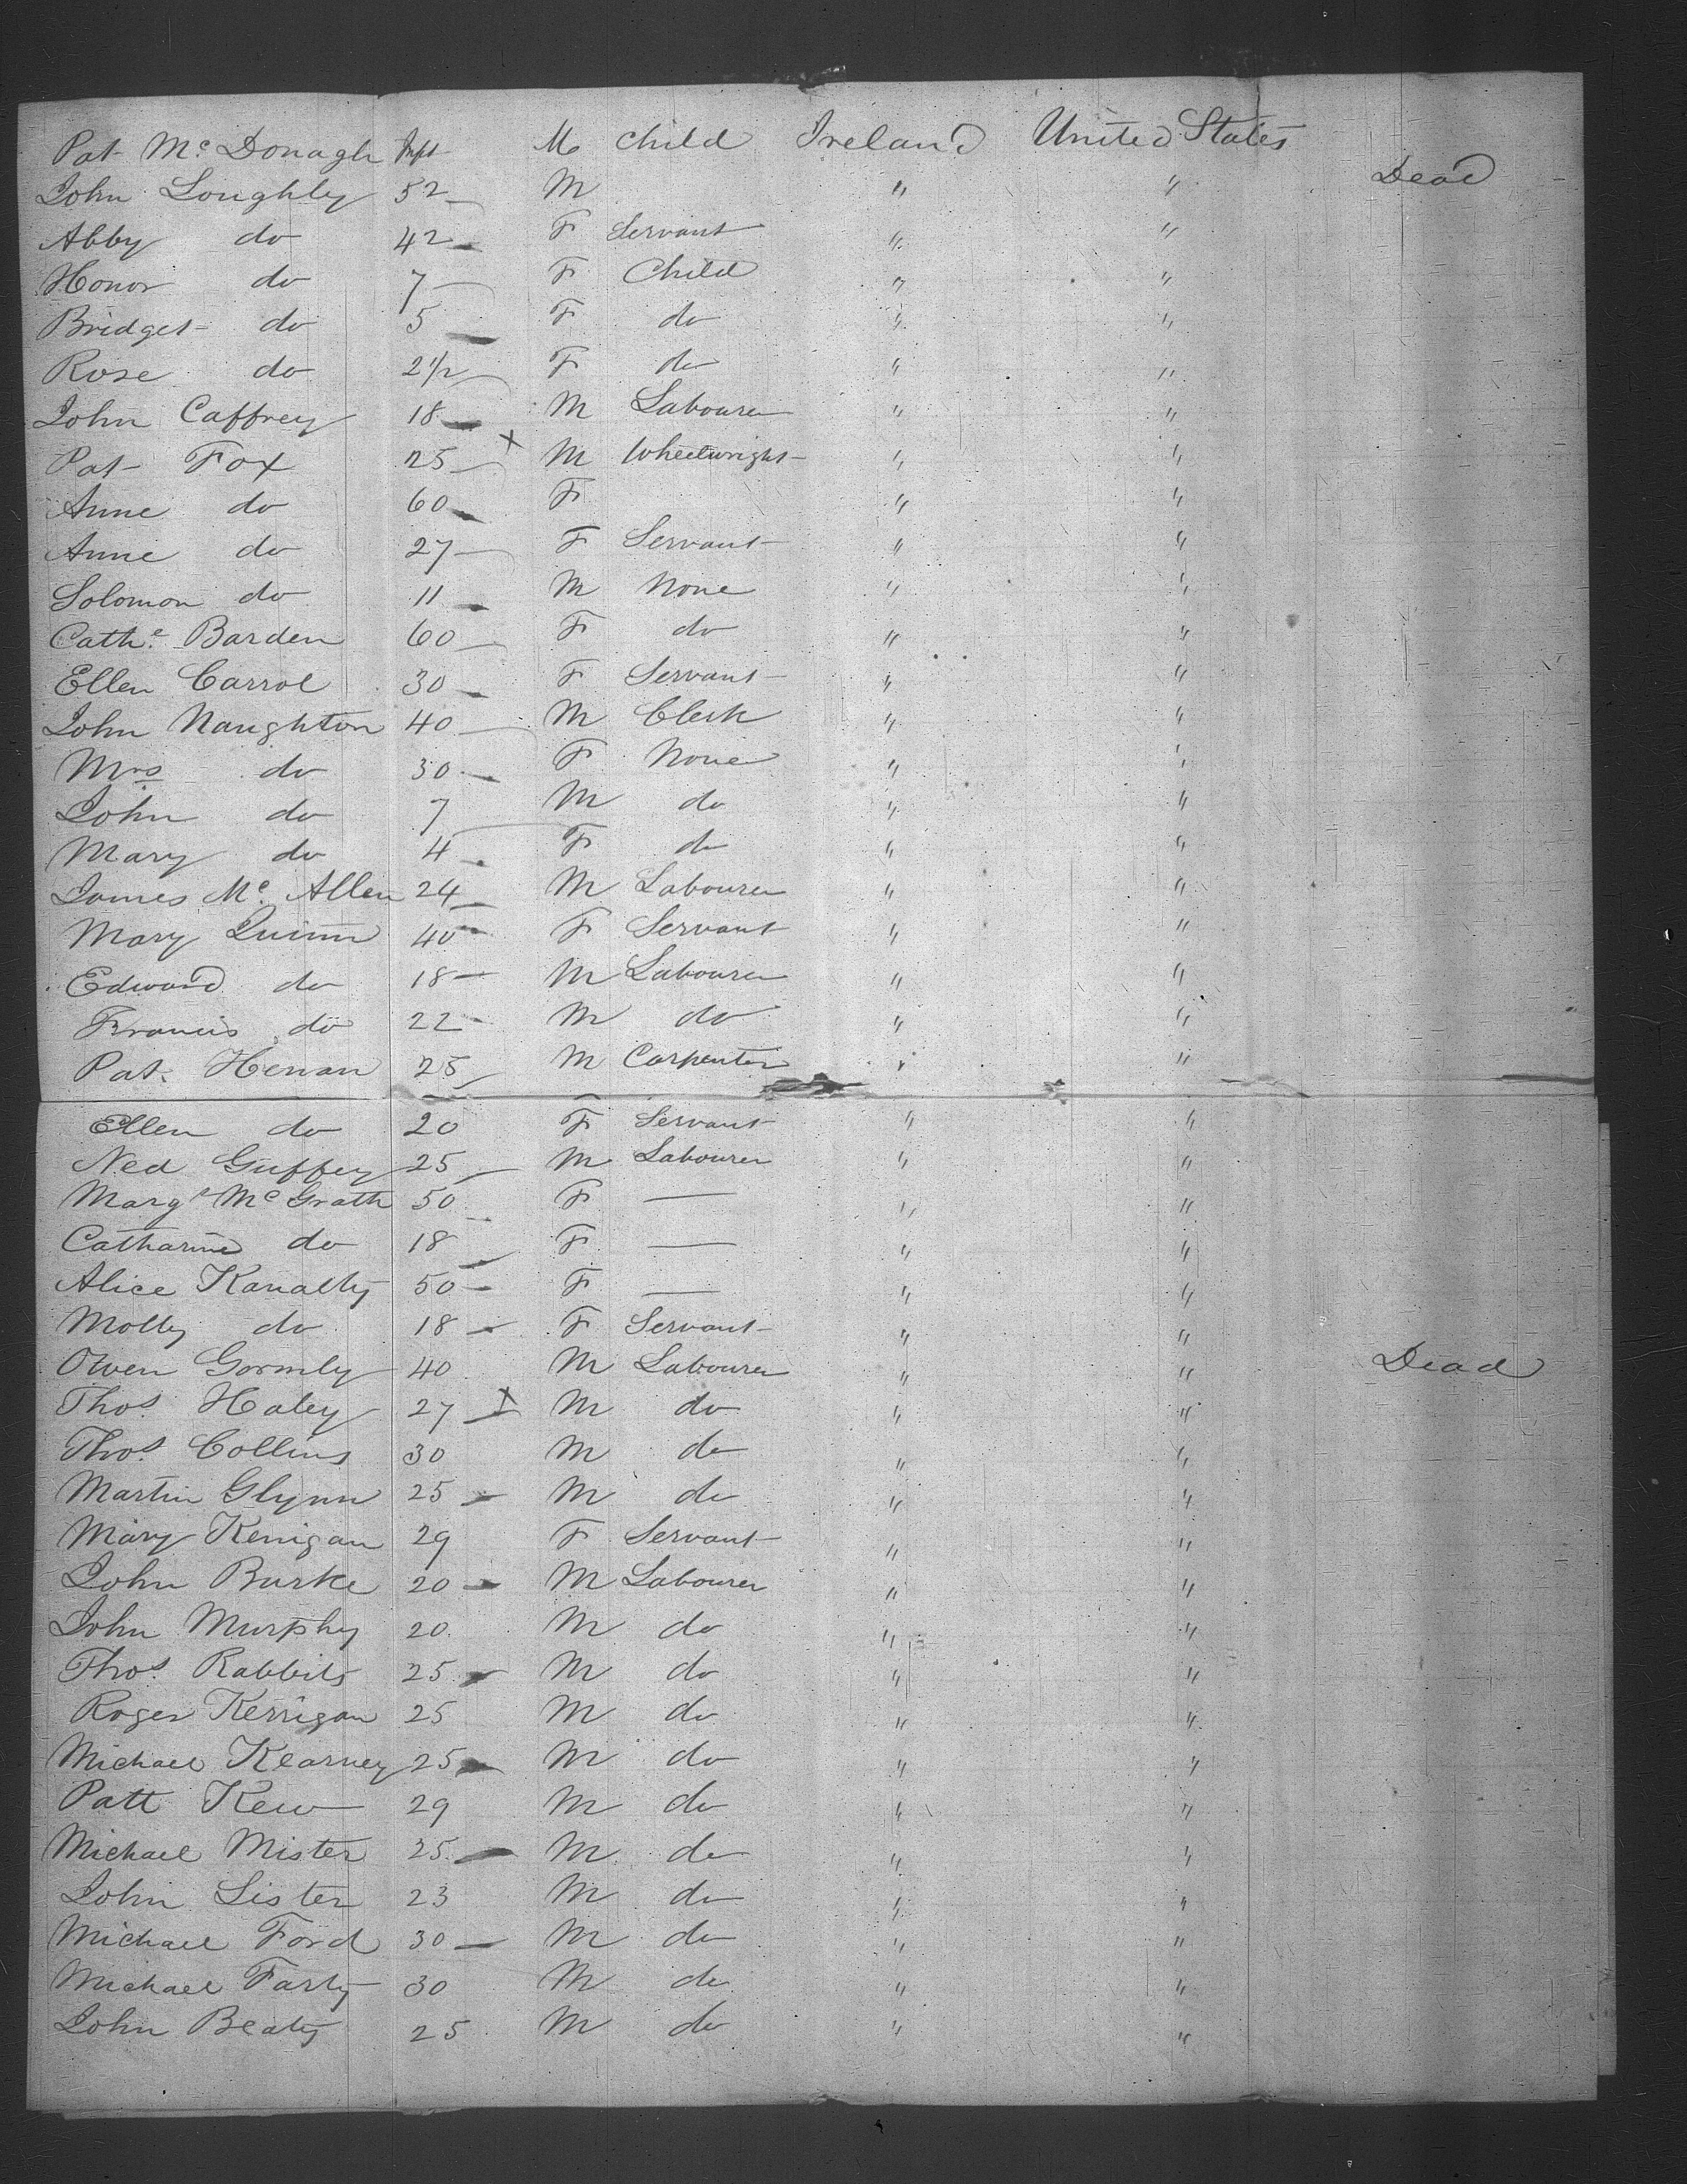 Pat McDonagh Inft M Child Ireland United States
John Loughly 52 M " " Dead
Abby do 42 F Servant " "
Honor do 7 F Child " "
Bridget do 5 F do " "
Rose do 2 1/2 F do " "
John Caffrey 18 M Labourer " "
Pat Fox 25 x M Wheelwright " "
Anne do 60 F " "
Anne do 27 F Servant " "
Solomon do 11 M None " "
Cathe Barden 60 F do " "
Ellen Carrol 30 F Servant " "
John Naughton 40 M Clerk " "
Mrs do 30 F None " "
John do 7 M do " "
Mary do 4 F do " "
James Mc Allen 24 M Labourer " "
Mary Quinn 40 F Servant " "
Edward do 18 M Labourer " "
Francis do 22 M do " "
Pat. Henan 25 M Carpenter " "
Ellen do 20 F Servant " "
Ned Guffey 25 M Labourer " "
Marg Mc Grath 50 F — " "
Catharine do 18 F — " "
Alice Kanalty 50 F — " "
Molly do 18 F Servant " "
Owen Gormly 40 M Labourer " " Dead
Thos. Haley 27 x M do " "
Thos. Collins 30 M do " "
Martin Glynn 25 M do " "
Mary Kenigan 29 F Servant " "
John Burke 20 M Labourer " "
John Murphy 20 M do " "
Thos. Rabbits 25 M do " "
Roger Kerrigan 25 M do " "
Michael Kearney 25 M do " "
Patt Kew 29 M do " "
Michael Mister 25 M do " "
John Lister 23 M do " "
Michael Ford 30 M do " "
Michael Farty 30 M do " "
John Beaty 25 M do " "